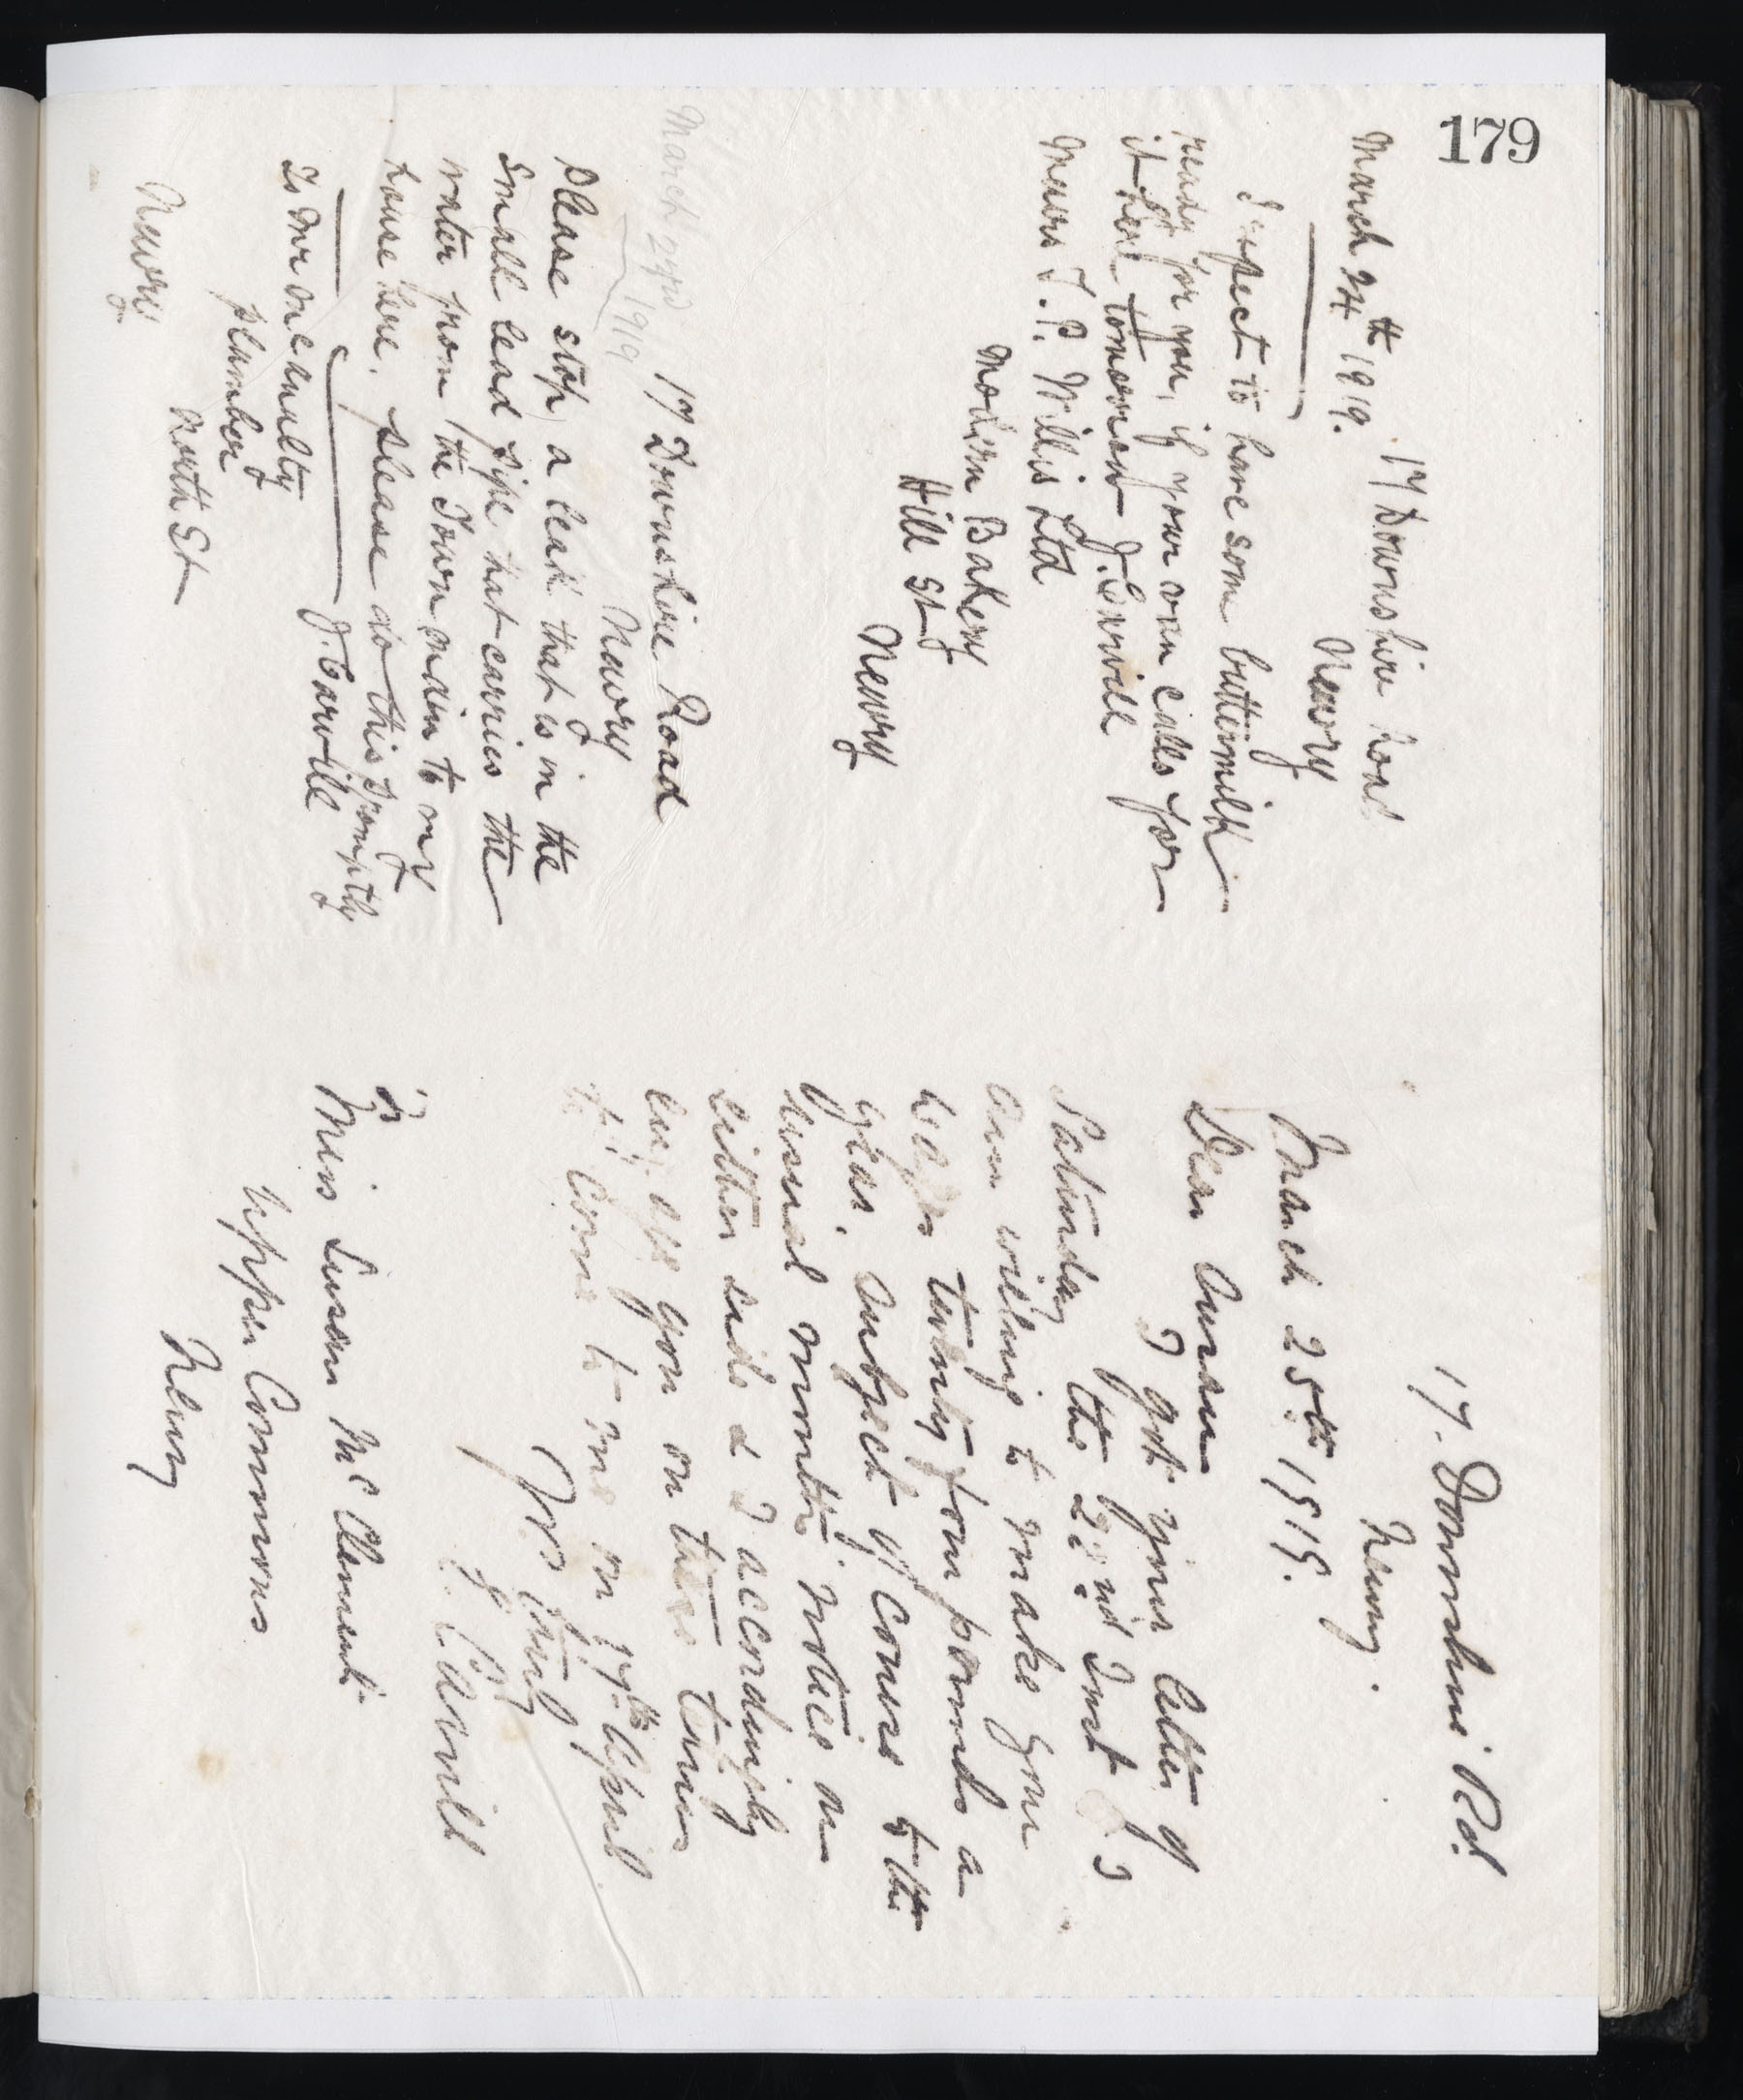 179
17 Downshire Road
Newry
March 24th 1919.
I expect to have some buttermilk
ready for you, if your van calls for
it here tomorrow J. Carvill
Messrs J. P. Willis Ltd
Modern Bakery
Hill St
Newry
17 Downshire Road
Newry
March 23rd 1919
Please stop a leak that is in the
small lead pipe that carries the
water from the Town main to my
house here. please do this promptly
J. Carvill
To Mr McAnulty
plumber
North St
Newry
17. Downshire Rd.
Newry.
March 25th 1919.
Dear Susan
I got your letter of
Saturday the 22nd Inst & I
am willing to make your
wages twenty four pounds a
year, subject of course to the
usual months notice on
either side & I accordingly
engage you on these terms
to come to me on 17th April
Yrs truly
J. Carvill
To
Miss Susan McClement
Upper Commons
Newry